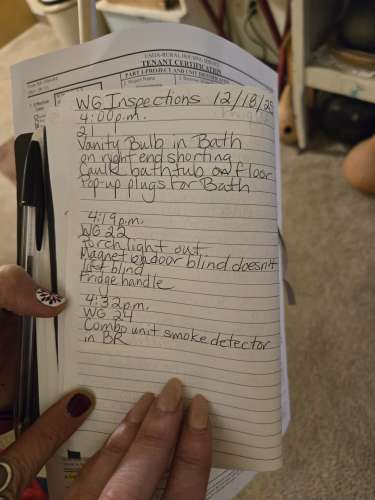 USDA-RURAL HOUSING SERVICE
TENANT CERTIFICATION
PART I PROJECT AND UNIT IDENTIFICATION
WG Inspections 12/18/25
4:00p.m.
21
Vanity Bulb in Bath
on right end shorting
Caulk bathtub on floor
Pop-up plugs for Bath
4:19p.m.
WG 22
Porch light out
Magnet on door blind doesn't
left blind
Fridge handle
4:32p.m.
WG 24
Combo unit smoke detector
in BR